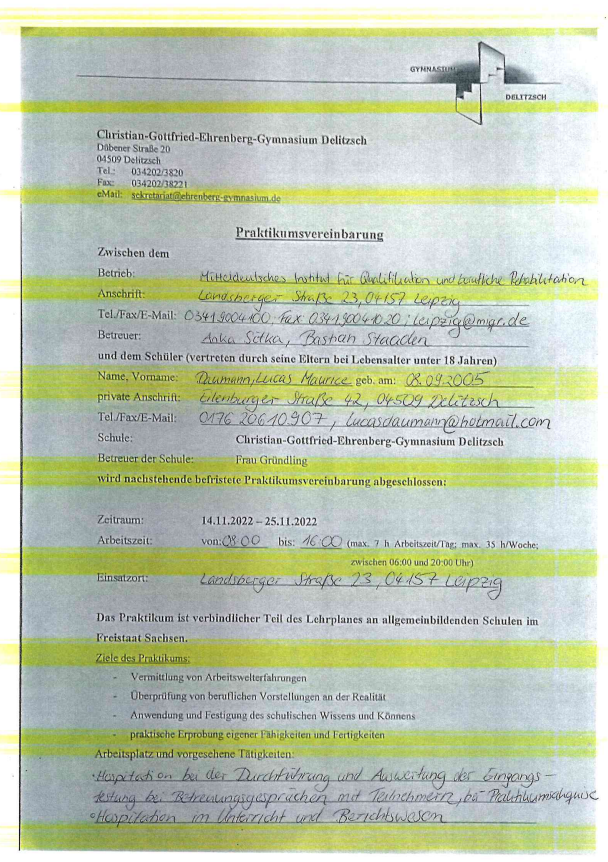 GYMNASIUM
DELITZSCH
Christian-Gottfried-Ehrenberg-Gymnasium Delitzsch
Dübener Straße 20
04509 Delitzsch
Tel.: 034202/3820
Fax: 034202/38221
eMail: sekretariat@ehrenberg-gymnasium.de
Praktikumsvereinbarung
Zwischen dem
Betrieb: Mitteldeutsches Institut für Qualifikation und berufliche Rehabilitation
Anschrift: Landsberger Straße 23, 04157 Leipzig
Tel./Fax/E-Mail: 03419004100, Fax 034190041020; leipzig@miqr.de
Betreuer: Anka Sotka, Bastian Staaden
und dem Schüler (vertreten durch seine Eltern bei Lebensalter unter 18 Jahren)
Name, Vorname: Daumann, Lucas Maurice geb. am: 08.09.2005
private Anschrift: Eilenburger Straße 42, 04509 Delitzsch
Tel./Fax/E-Mail: 0176 20610907, lucasdaumann@hotmail.com
Schule: Christian-Gottfried-Ehrenberg-Gymnasium Delitzsch
Betreuer der Schule: Frau Gründling
wird nachstehende befristete Praktikumsvereinbarung abgeschlossen:
Zeitraum: 14.11.2022 – 25.11.2022
Arbeitszeit: von: 08:00 bis: 16:00 (max. 7 h Arbeitszeit/Tag; max. 35 h/Woche;
zwischen 06:00 und 20:00 Uhr)
Einsatzort: Landsberger Straße 23, 04157 Leipzig
Das Praktikum ist verbindlicher Teil des Lehrplanes an allgemeinbildenden Schulen im
Freistaat Sachsen.
Ziele des Praktikums:
- Vermittlung von Arbeitswelterfahrungen
- Überprüfung von beruflichen Vorstellungen an der Realität
- Anwendung und Festigung des schulischen Wissens und Könnens
- praktische Erprobung eigener Fähigkeiten und Fertigkeiten
Arbeitsplatz und vorgesehene Tätigkeiten:
• Hospitation bei der Durchführung und Auswertung der Eingangs-
testung bei Betreuungsgesprächen mit Teilnehmern, bei Praktikumsakquise
• Hospitation im Unterricht und Berichtswesen